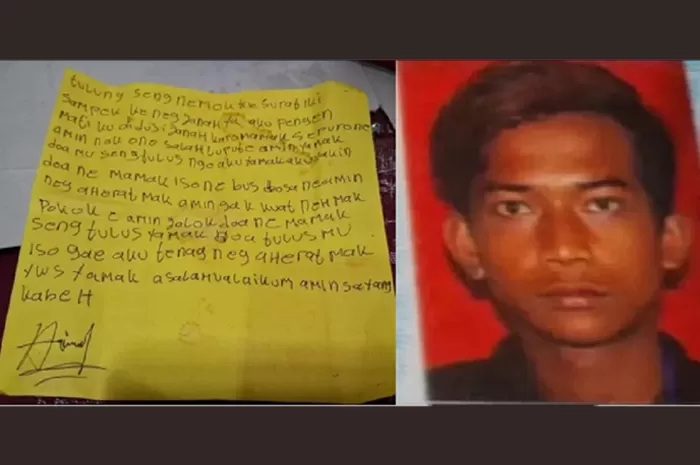 tulung seng nemokke Surat iki
Sampek ke neg Janah ya aku pengen
Mati ku didusi Janah karo mamak Sepurone
amin nak one salah lupute amin ya mak
doa mu seng tulus nggo aku ya mak aku yakin
doa ne mamak iso ne bus dosa ne amin
neg aherat mak amin gak kuat neh mak
Pokok e amin jalok doa ne mamak
seng tulus ya mak doa tulus mu
iso gae aku tenag neg aherat mak
yws ya mak asalamualaikum amin sayang
kabeh